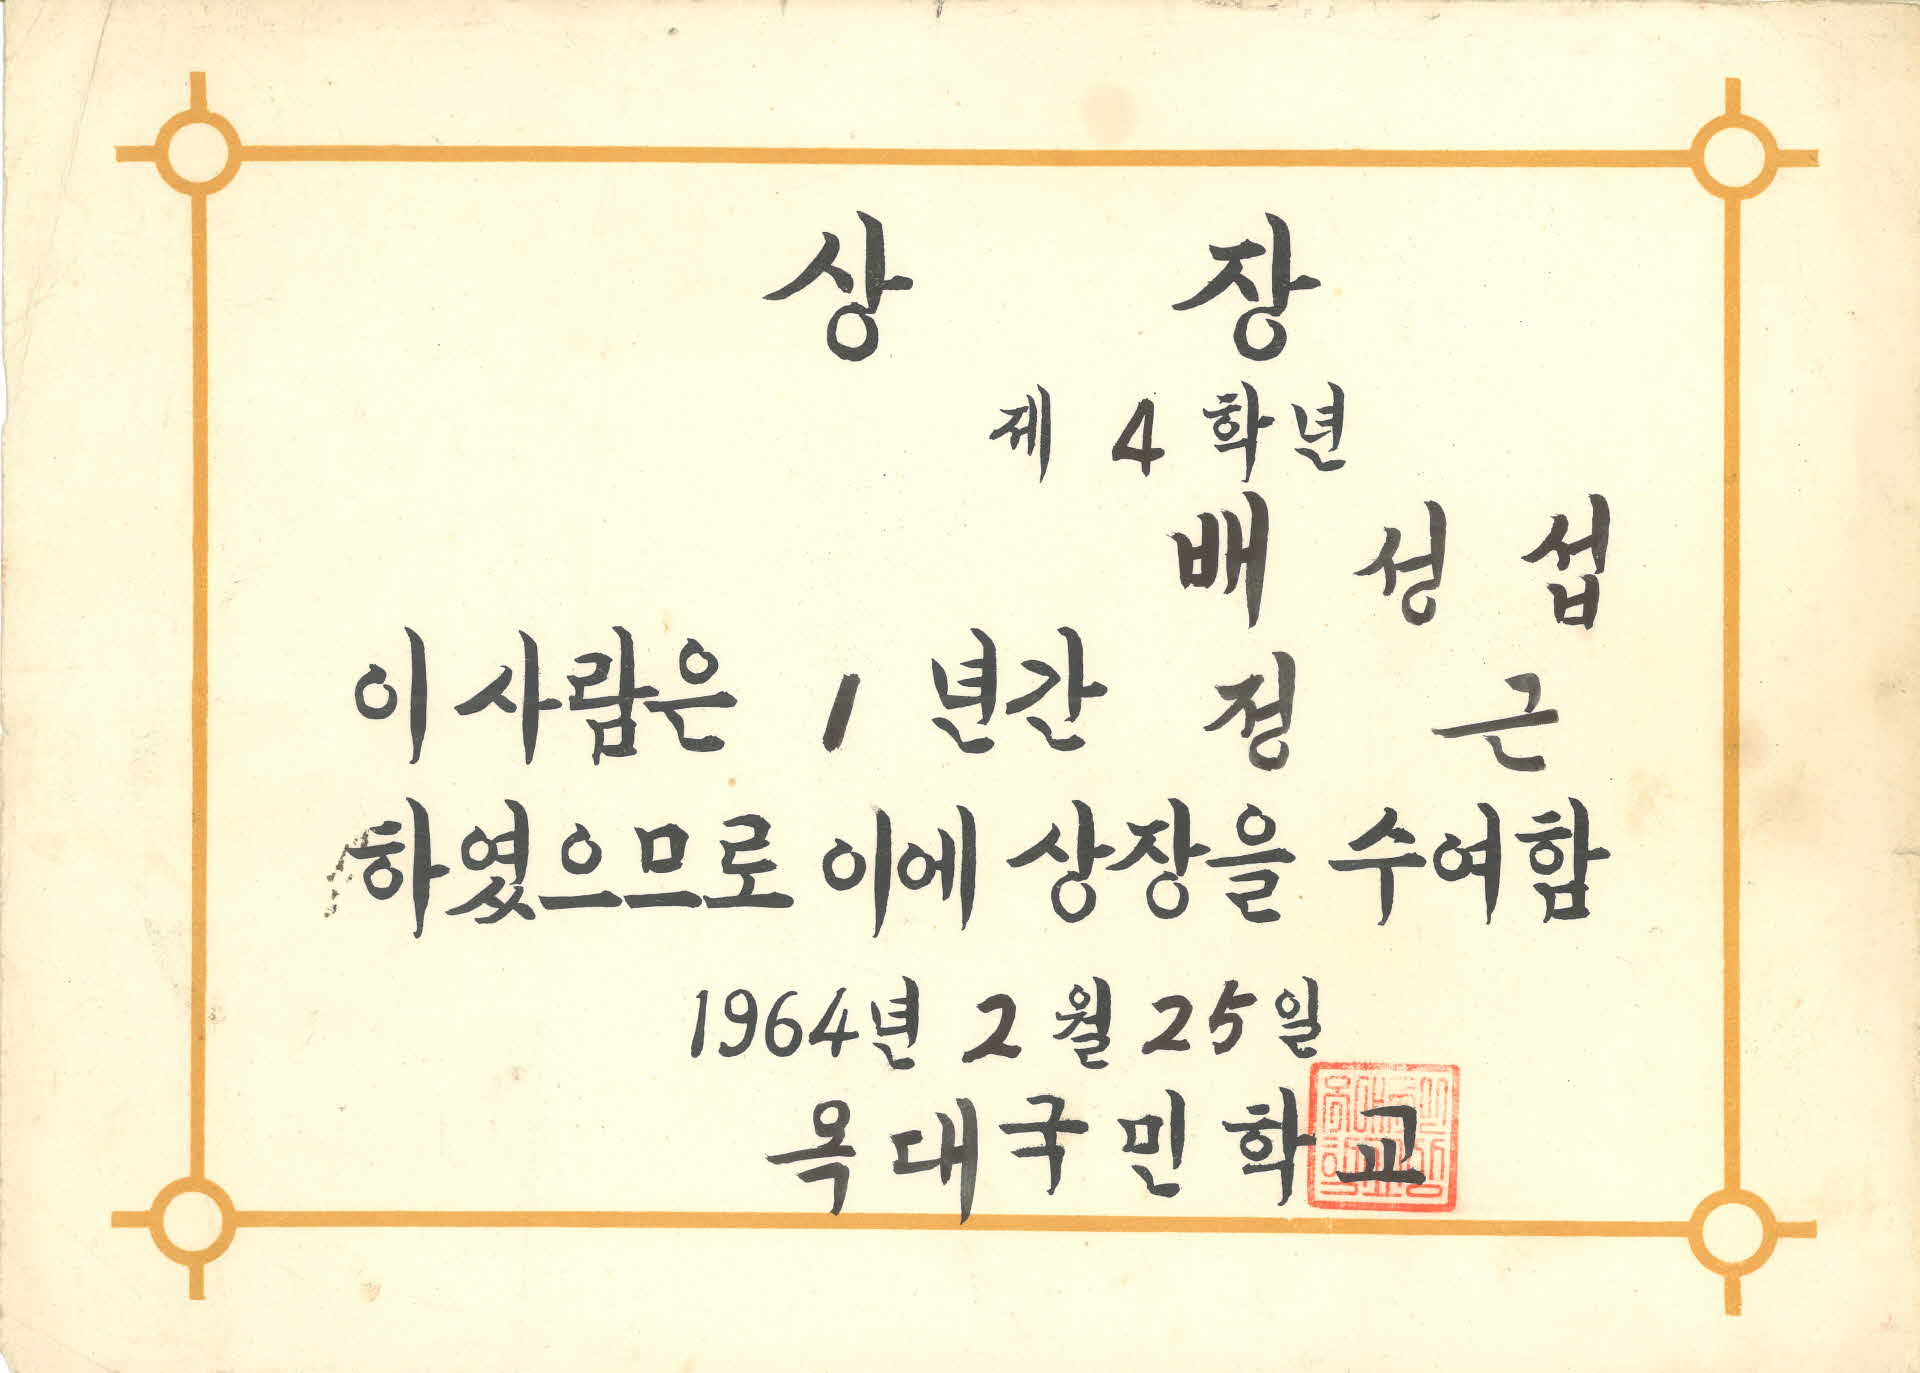 상 장
제 4 학년
배 성 섭
이 사람은 1 년간 정 근
하였으므로 이에 상장을 수여함
1964년 2 월 25 일
옥대국민학교